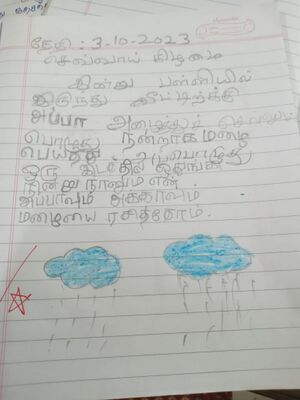 தேதி : 3-10-2023
செவ்வாய் கிழமை
இன்று பள்ளியில்
இருந்து வீட்டிற்கு
அப்பா அழைத்துச்
பொழுது நன்றாக மழை
பெய்தது
ஒரு இடத்தில்
நின்று நானும் என்
அப்பாவும் அக்காவும்
மழையை ரசித்தோம்.